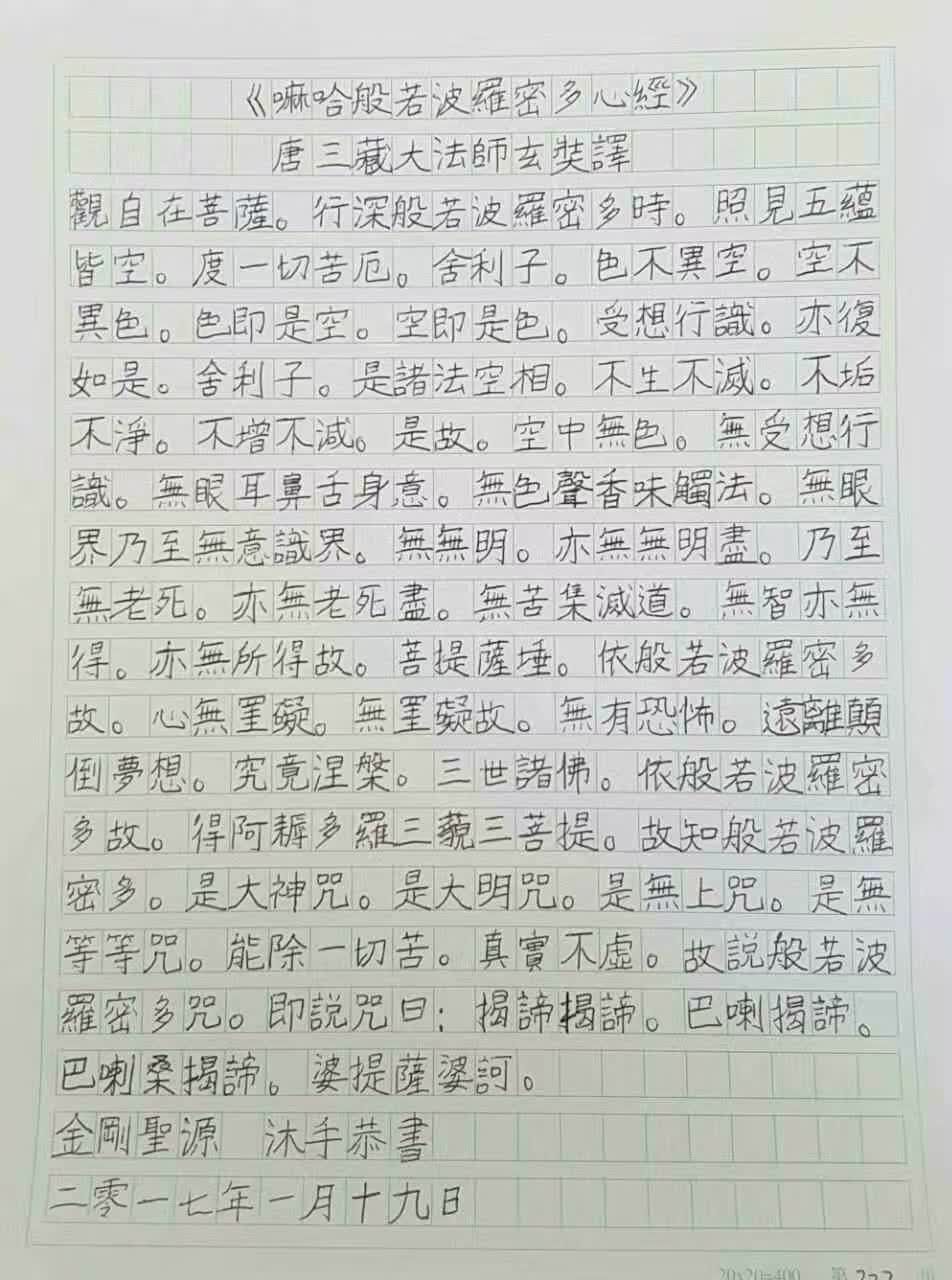 《嘛哈般若波羅密多心經》
唐三藏大法師玄奘譯
觀自在菩薩。行深般若波羅密多時。照見五蘊
皆空。度一切苦厄。舍利子。色不異空。空不
異色。色即是空。空即是色。受想行識。亦復
如是。舍利子。是諸法空相。不生不滅。不垢
不淨。不增不減。是故。空中無色。無受想行
識。無眼耳鼻舌身意。無色聲香味觸法。無眼
界乃至無意識界。無無明。亦無無明盡。乃至
無老死。亦無老死盡。無苦集滅道。無智亦無
得。亦無所得故。菩提薩埵。依般若波羅密多
故。心無罣礙。無罣礙故。無有恐怖。遠離顛
倒夢想。究竟涅槃。三世諸佛。依般若波羅密
多故。得阿耨多羅三藐三菩提。故知般若波羅
密多。是大神咒。是大明咒。是無上咒。是無
等等咒。能除一切苦。真實不虛。故説般若波
羅密多咒。即説咒曰：揭諦揭諦。巴喇揭諦。
巴喇桑揭諦。婆提薩婆訶。
金剛聖源 沐手恭書
二零一七年一月十九日
20x20=400 第